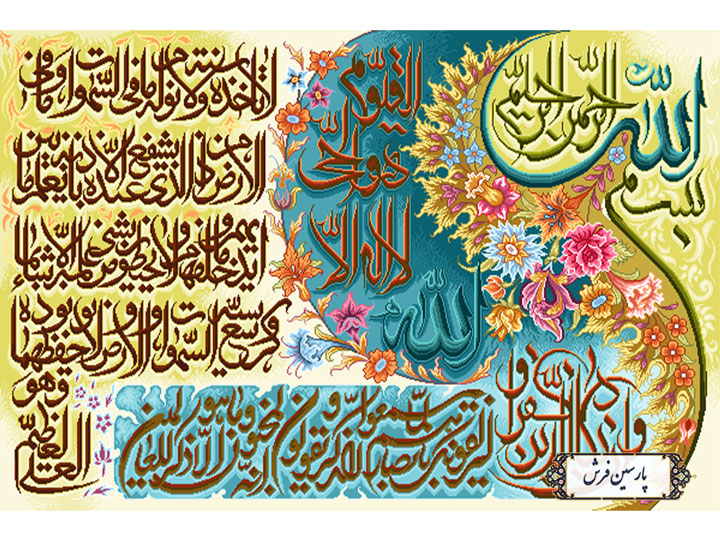 بسم الله الرحمن الرحيم
الله لا اله الا هو الحي القيوم
لا تاخذه سنة ولا نوم له ما في السموات وما في
الارض من ذا الذي يشفع عنده الا باذنه يعلم ما بين
ايديهم وما خلفهم ولا يحيطون بشيء من علمه الا بما شاء
وسع كرسيه السموات والارض ولا يؤده حفظهما
وهو
العلي العظيم
وان يكاد الذين كفروا
ليزلقونك بابصارهم لما سمعوا الذكر ويقولون انه لمجنون وما هو الا ذكر للعالمين
پارسین فرش